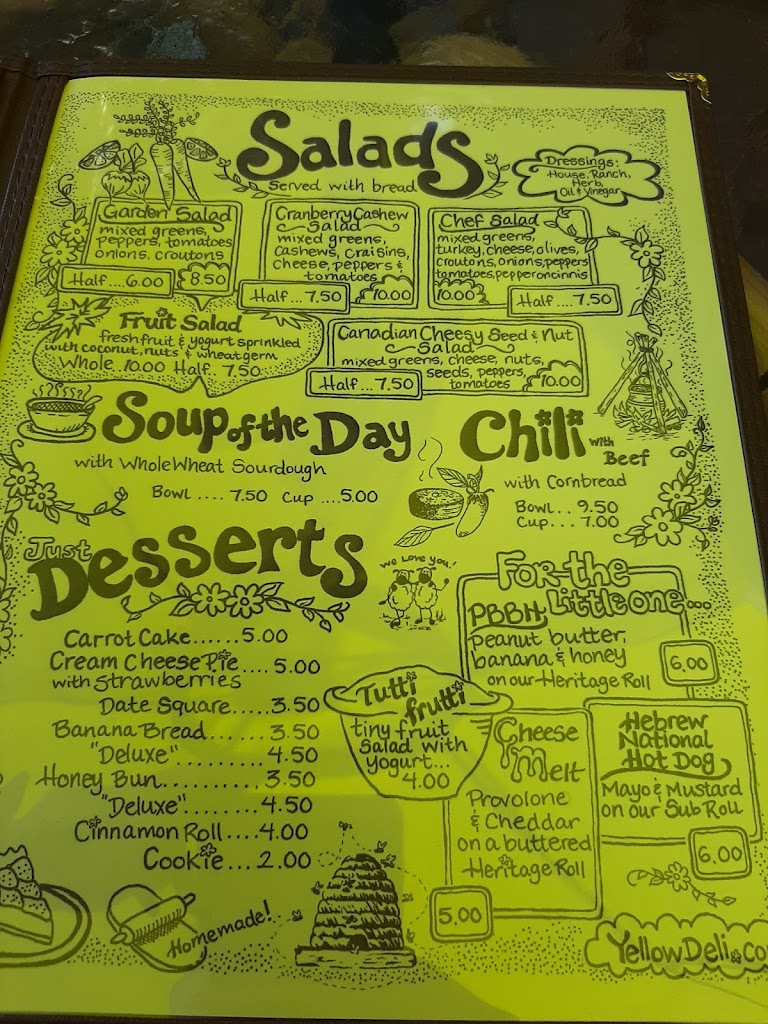 Salads
Served with bread
Dressings:
House, Ranch,
Herb,
Oil & Vinegar
Garden Salad
mixed greens,
peppers, tomatoes
onions, croutons
Half....6.00
8.50
Cranberry Cashew
Salad
mixed greens,
cashews, craisins,
cheese, peppers &
tomatoes
Half...7.50
10.00
Chef Salad
mixed greens,
turkey, cheese, olives,
croutons, onions, peppers
tomatoes, pepperoncinnis
10.00
Half...7.50
Fruit Salad
fresh fruit & yogurt sprinkled
with coconut, nuts & wheat germ
Whole 10.00 Half 7.50
Canadian Cheesy Seed & Nut
Salad
mixed greens, cheese, nuts,
seeds, peppers,
tomatoes
Half...7.50
10.00
Soup of the Day
with Whole Wheat Sourdough
Bowl .... 7.50 Cup ....5.00
Chili with
Beef
with Cornbread
Bowl.. 9.50
Cup... 7.00
Just
Desserts
Carrot Cake......5.00
Cream Cheese Pie....5.00
with Strawberries
Date Square.....3.50
Banana Bread.......3.50
"Deluxe".........4.50
Honey Bun..........3.50
"Deluxe".........4.50
Cinnamon Roll....4.00
Cookie...2.00
Homemade!
We Love You!
For the
Little one...
PBBH
peanut butter,
banana & honey
on our Heritage Roll
6.00
Tutti
frutti
tiny fruit
salad with
yogurt...
4.00
Cheese
Melt
Provolone
& Cheddar
on a buttered
Heritage Roll
5.00
Hebrew
National
Hot Dog
Mayo & Mustard
on our Sub Roll
6.00
YellowDeli.co